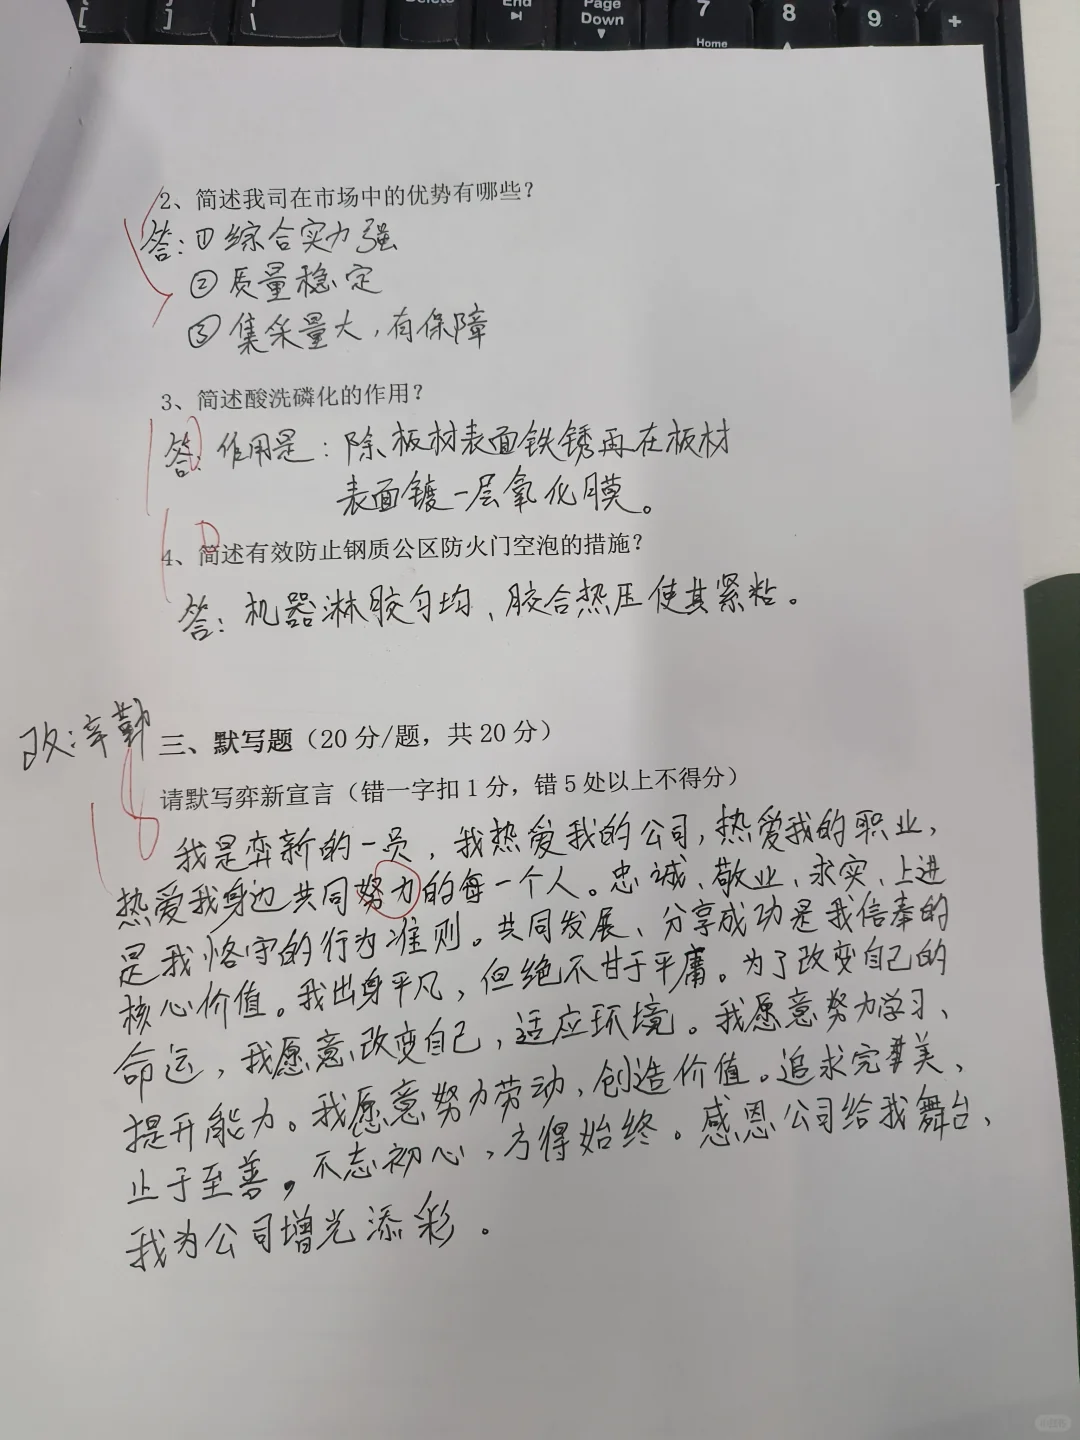 Delete
End
Page
Down
7
Home
8
9
+
[
\
2、简述我司在市场中的优势有哪些?
答:①综合实力强
②质量稳定
③集采量大,有保障
3、简述酸洗磷化的作用?
答:作用是:除板材表面铁锈再在板材
表面镀一层氧化膜。
4、简述有效防止钢质公区防火门空泡的措施?
答:机器淋胶匀均、胶合热压使其紧粘。
改:辛勤
三、默写题(20分/题,共20分)
18
请默写弈新宣言(错一字扣1分,错5处以上不得分)
我是弈新的一员,我热爱我的公司,热爱我的职业,
热爱我身边共同努力的每一个人。忠诚、敬业、求实、上进
是我恪守的行为准则。共同发展、分享成功是我信奉的
核心价值。我出身平凡,但绝不甘于平庸。为了改变自己的
命运,我愿意改变自己,适应环境。我愿意努力学习、
提升能力。我愿意努力劳动,创造价值。追求完美、
止于至善,不忘初心,方得始终。感恩公司给我舞台、
我为公司增光添彩。